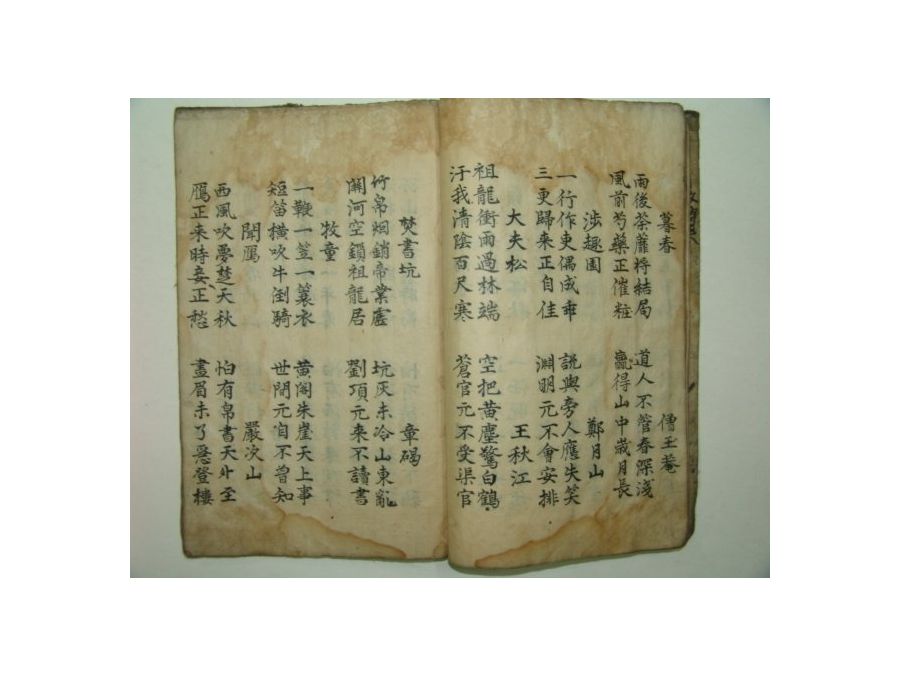 暮春 僧玉菴
雨後荼䕷将結局 道人不管春深淺
風前芍藥正催粧 贏得山中歲月長
涉趣園 鄭月山
一行作吏偶成乖 說與旁人應失笑
三更歸来正自佳 淵明元不會安排
大夫松 王秋江
祖龍衝雨過林端 空把黄塵驚白鶴
汙我清陰百尺寒 蒼官元不受渠官
焚書坑 章碣
竹帛烟銷帝業虛 坑灰未冷山東亂
關河空鎖祖龍居 劉項元来不讀書
牧童
一鞭一笠一簑衣 黄閣朱崖天上事
短笛横吹牛倒騎 世間元自不曾知
聞鴈 嚴次山
西風吹夢楚天秋 怕有帛書天外至
鴈正来時妾正愁 畫眉未了惡登樓